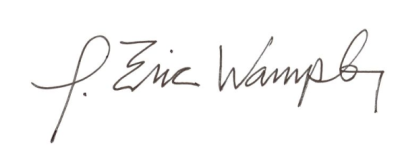 J. Eric Wampler